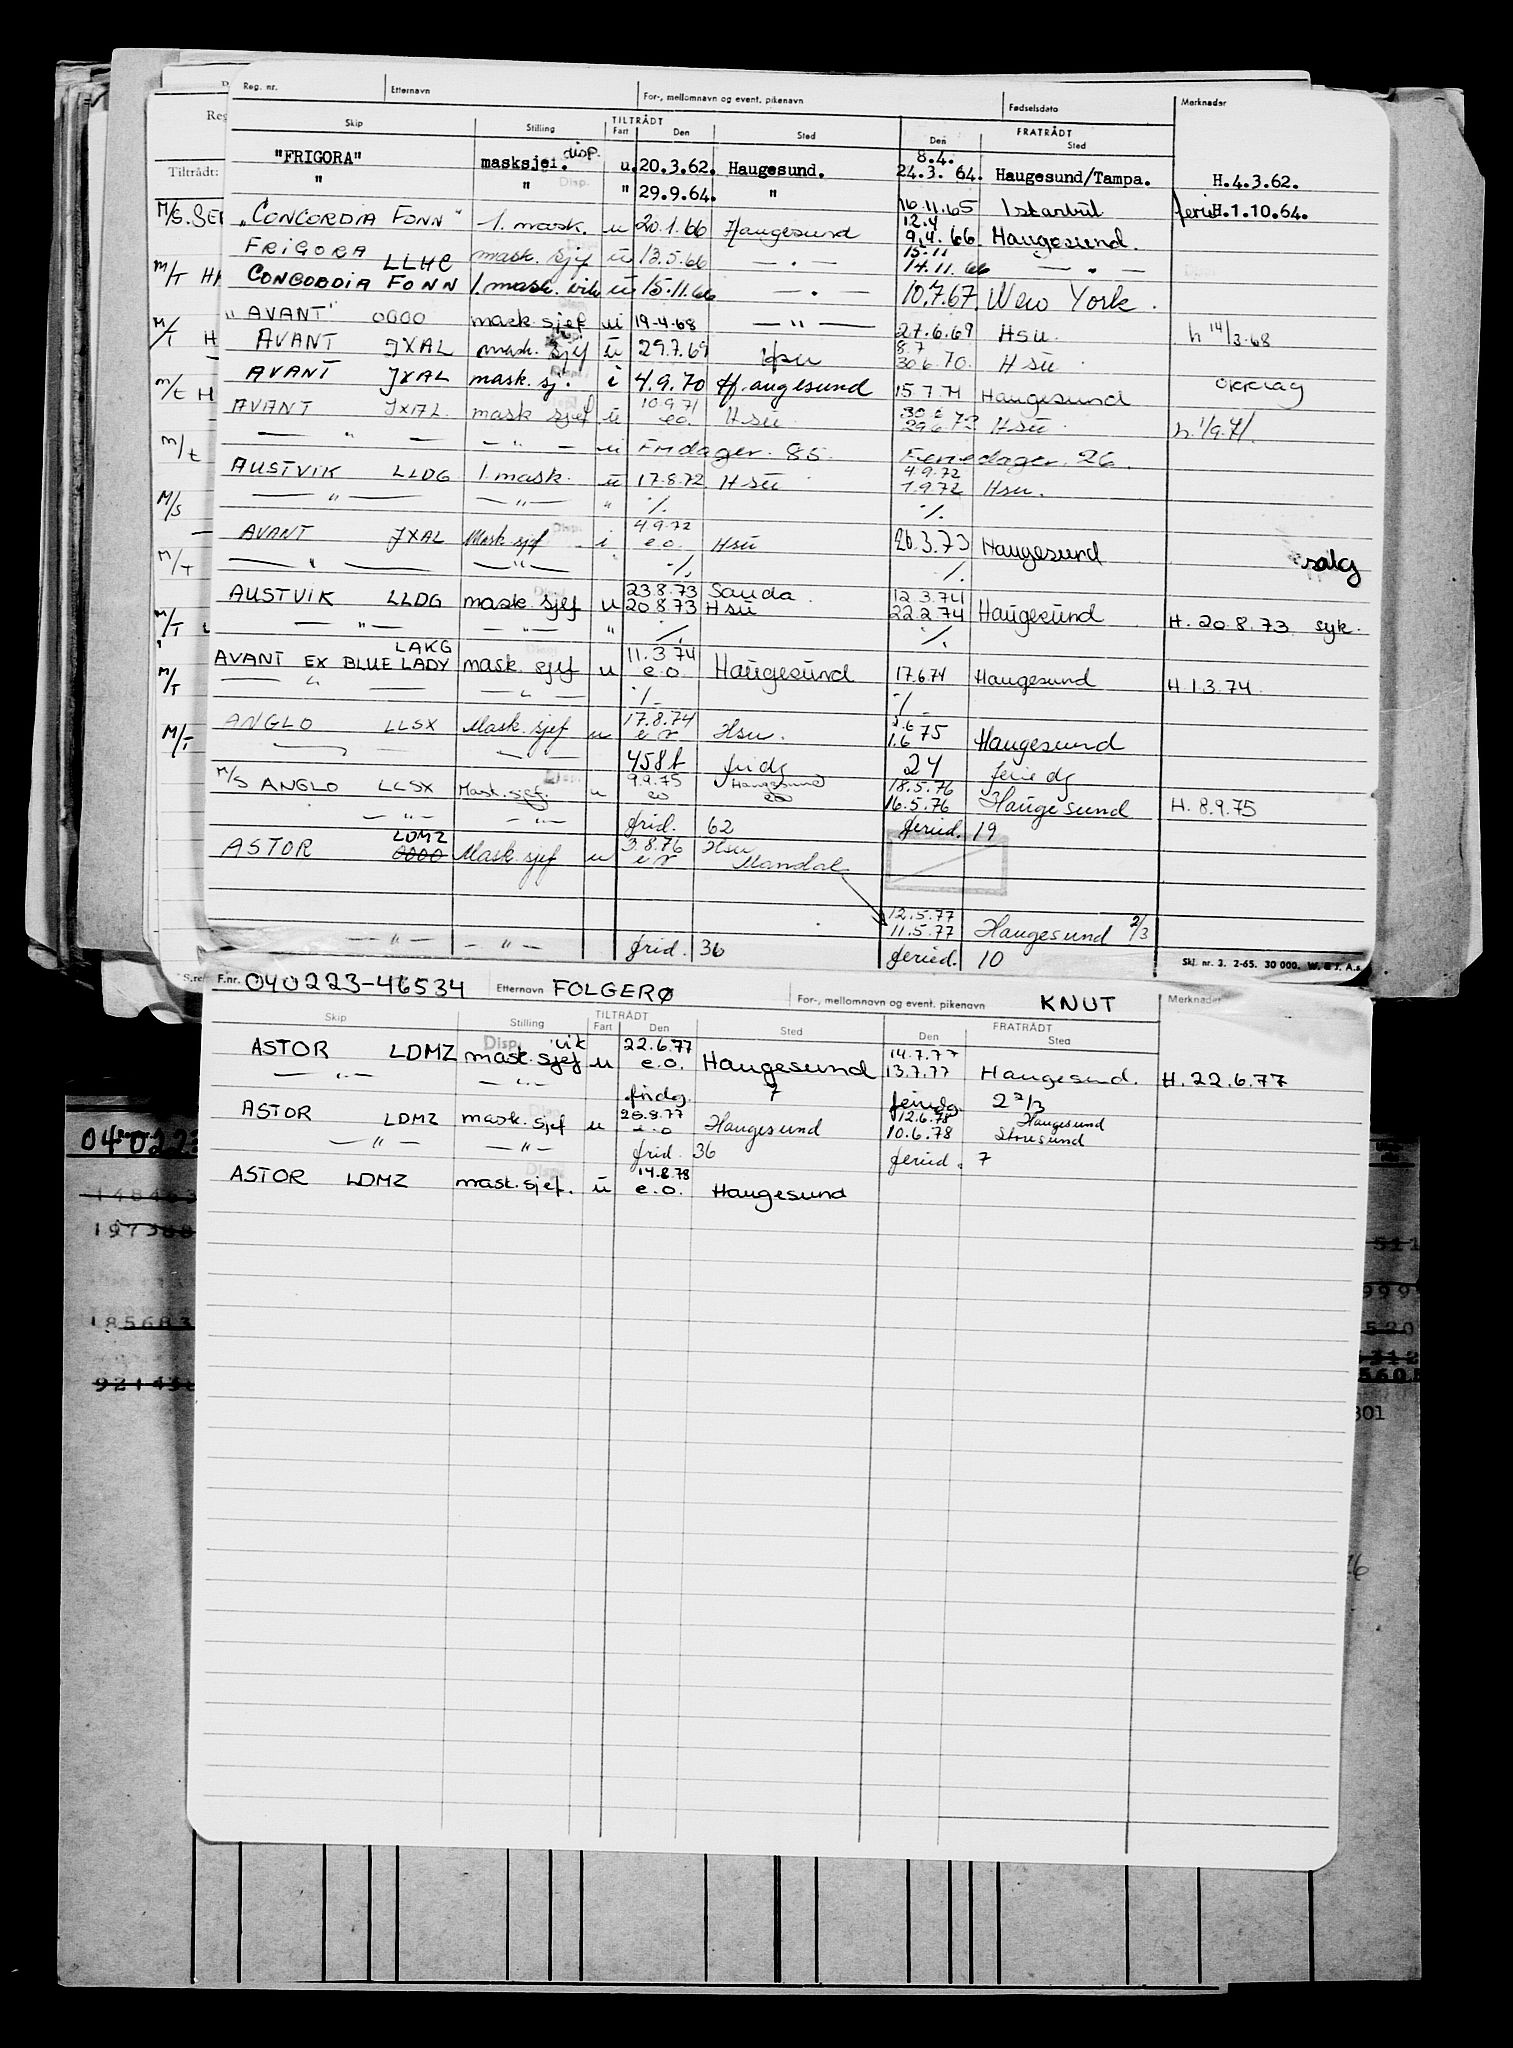 Reg. nr. Etternavn For-, mellomnavn og event. pikenavn Fødselsdato Merknader
Skip Stilling TILTRÅDT Fart Den Sted FRATRÅDT Den Sted
Tiltrådt:
"FRIGORA" masksjef. disp. u. 20.3.62. Haugesund. 8.4. 24.3. 64. Haugesund/Tampa. H.4.3.62.
" " " 29.9.64. " 16.11.65 Istanbul ferie H.1.10.64.
M/S. SE "CONCORDIA FONN" 1. mask. u 20.1.66 Haugesund 12.4 9.4.66 Haugesund.
FRIGORA LLHC mask. sjef ü 13.5.66 — " — 15.11 14.11.66 — " —
M/T H CONCORDIA FONN 1. mask. vik ü 15.11.66 — " — 10.7.67. New York.
"AVANT" 0000 mask. sjef ü 19-4-68 — " — 27.6.69 Hsu. h 14/3-68
M/T H AVANT JXAL mask. sjef ü 29.7.69 Hsu 8.7 30.6.70. Hsü
AVANT JXAL mask. sj. i 4.9.70 Haugesund 15.7.71 Haugesund opplag
M/t H AVANT JXAL. mask sjef ü 10.9.71 e.o. Hsü 30.6 29.6.72 Hsü. h. 1/9.71.
— " — — " — ü Fridager. 85 Feriedager. 26.
M/t AUSTVIK LLDG 1. mask. ü 17.8.72 Hsü 4.9.72 1.9.72 Hsu.
M/S — " — — " — " ./. ./.
AVANT JXAL Mask. sjef i 4.9.72 e.o. Hsü 26.3.73 Haugesund salg
M/T — " — — " — " ./. ./.
AUSTVIK LLDG mask. sjef u 23.8.73 20.8.73 Sauda. Hsü 12.3.74 22.2.74 Haugesund H. 20.8.73 syk.
M/T — " — — " — " ./. ./.
AVANT EX BLUE LADY LAKG mask. sjef u 11.3.74 e.o. Haugesund 17.6.74 Haugesund H.1.3.74.
M/T — " — — " — ./. ./.
M/T ANGLO LLSX Mask. sjef u 17.8.74 Hsu. 1.6 75 Haugesund
— " — 458t fridg 24 feriedg
M/S ANGLO LLSX Mask. sjef. u 9.9.75 eo Haugesund eo 18.5.76 16.5.76 Haugesund H. 8.9.75
— " — — " — frid. 62 feried. 19
ASTOR LDMZ 0000 Mask. sjef u 3.8.76 Hsu Mandal
12.5.77 11.5.77 Haugesund 2/3
— " — — " — frid. 36 feried. 10
Skj. nr. 3. 2-65. 30 000. W. & J. A.s
F.nr. 040223-46534 Etternavn FOLGERØ For-, mellomnavn og event. pikenavn KNUT Merknader
Skip Stilling TILTRÅDT Fart Den Sted FRATRÅDT Den Sted
ASTOR LDMZ Disp. vik mask. sjef u 22.6.77 e.o. Haugesund 14.7.77 13.7.77 Haugesund. H. 22.6.77
— " — — " — fridg. 7 feriedg. 2 2/3
ASTOR LDMZ mask. sjef u 25.8.77 e.o Haugesund 12.6.78 10.6.78 Haugesund Storesund
— " — — " — frid. 36 feried. 7
ASTOR LDMZ mask. sjef. ü 14.8.78 e.o. Haugesund